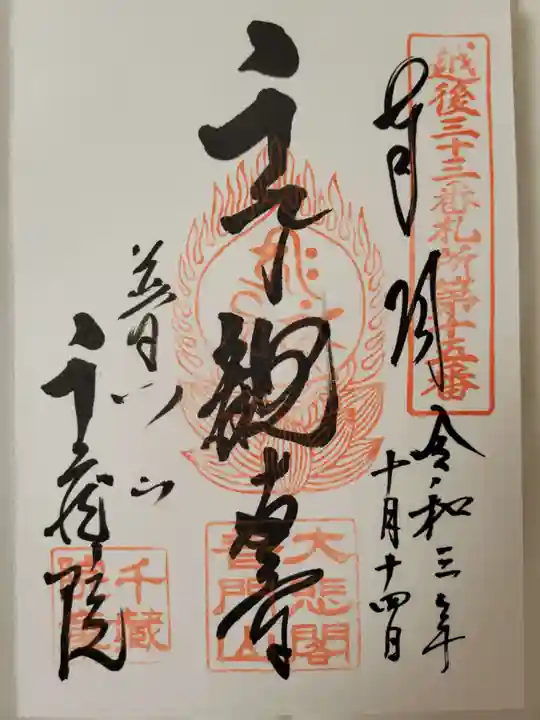 越後三十三番札所第十五番
奉拝
令和三年
十月十四日
千観音
大悲閣
普門山
普門山
千蔵院
千蔵
院